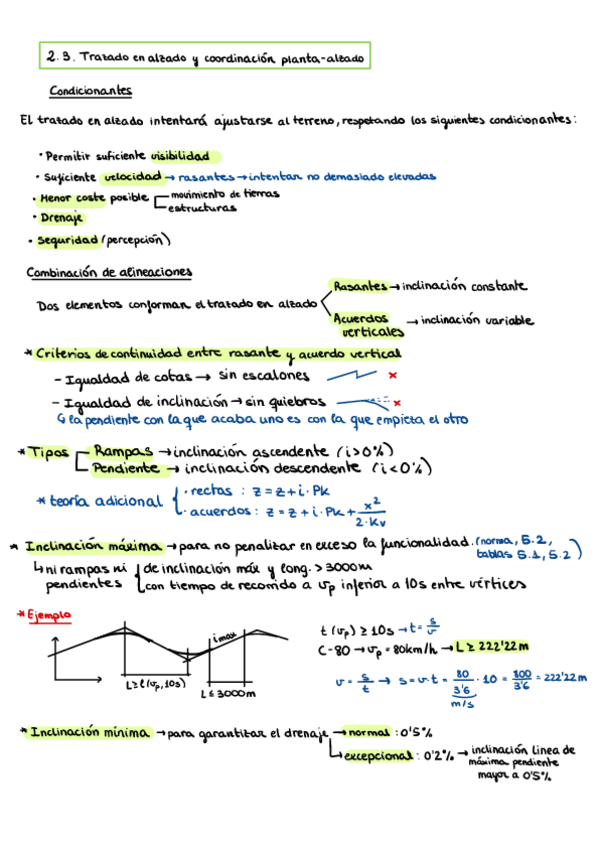 2.3. Trazado en alzado y coordinación planta-alzado
Condicionantes
El trazado en alzado intentará ajustarse al terreno, respetando los siguientes condicionantes:
· Permitir suficiente visibilidad
· Suficiente velocidad → rasantes → intentar no demasiado elevadas
· Menor coste posible movimiento de tierras
estructuras
· Drenaje
· Seguridad (percepción)
Combinación de alineaciones
Dos elementos conforman el trazado en alzado
Rasantes → inclinación constante
Acuerdos verticales → inclinación variable
* Criterios de continuidad entre rasante y acuerdo vertical
- Igualdad de cotas → sin escalones ×
- Igualdad de inclinación → sin quiebros ×
↳ la pendiente con la que acaba uno es con la que empieza el otro
* Tipos Rampas → inclinación ascendente (i>0%)
Pendiente → inclinación descendente (i<0%)
* teoría adicional · rectas : z = z + i · Pk
· acuerdos : z = z + i · Pk + x²/2·Kv
* Inclinación máxima → para no penalizar en exceso la funcionalidad. (norma, 5.2, tablas 5.1, 5.2)
↳ ni rampas ni pendientes de inclinación máx y long. > 3000m
con tiempo de recorrido a vp inferior a 10s entre vértices
* Ejemplo
i max
L≥ℓ(vp,10s)
L≤3000m
t(vp) ≥ 10s → t = s/v
C-80 → vp = 80km/h → L ≥ 222'22m
v = s/t → s = v·t = 80/3'6 · 10 = 800/3'6 = 222'22m
m/s
* Inclinación mínima → para garantizar el drenaje → normal : 0'5%
↳ excepcional : 0'2% → inclinación linea de máxima pendiente mayor a 0'5%